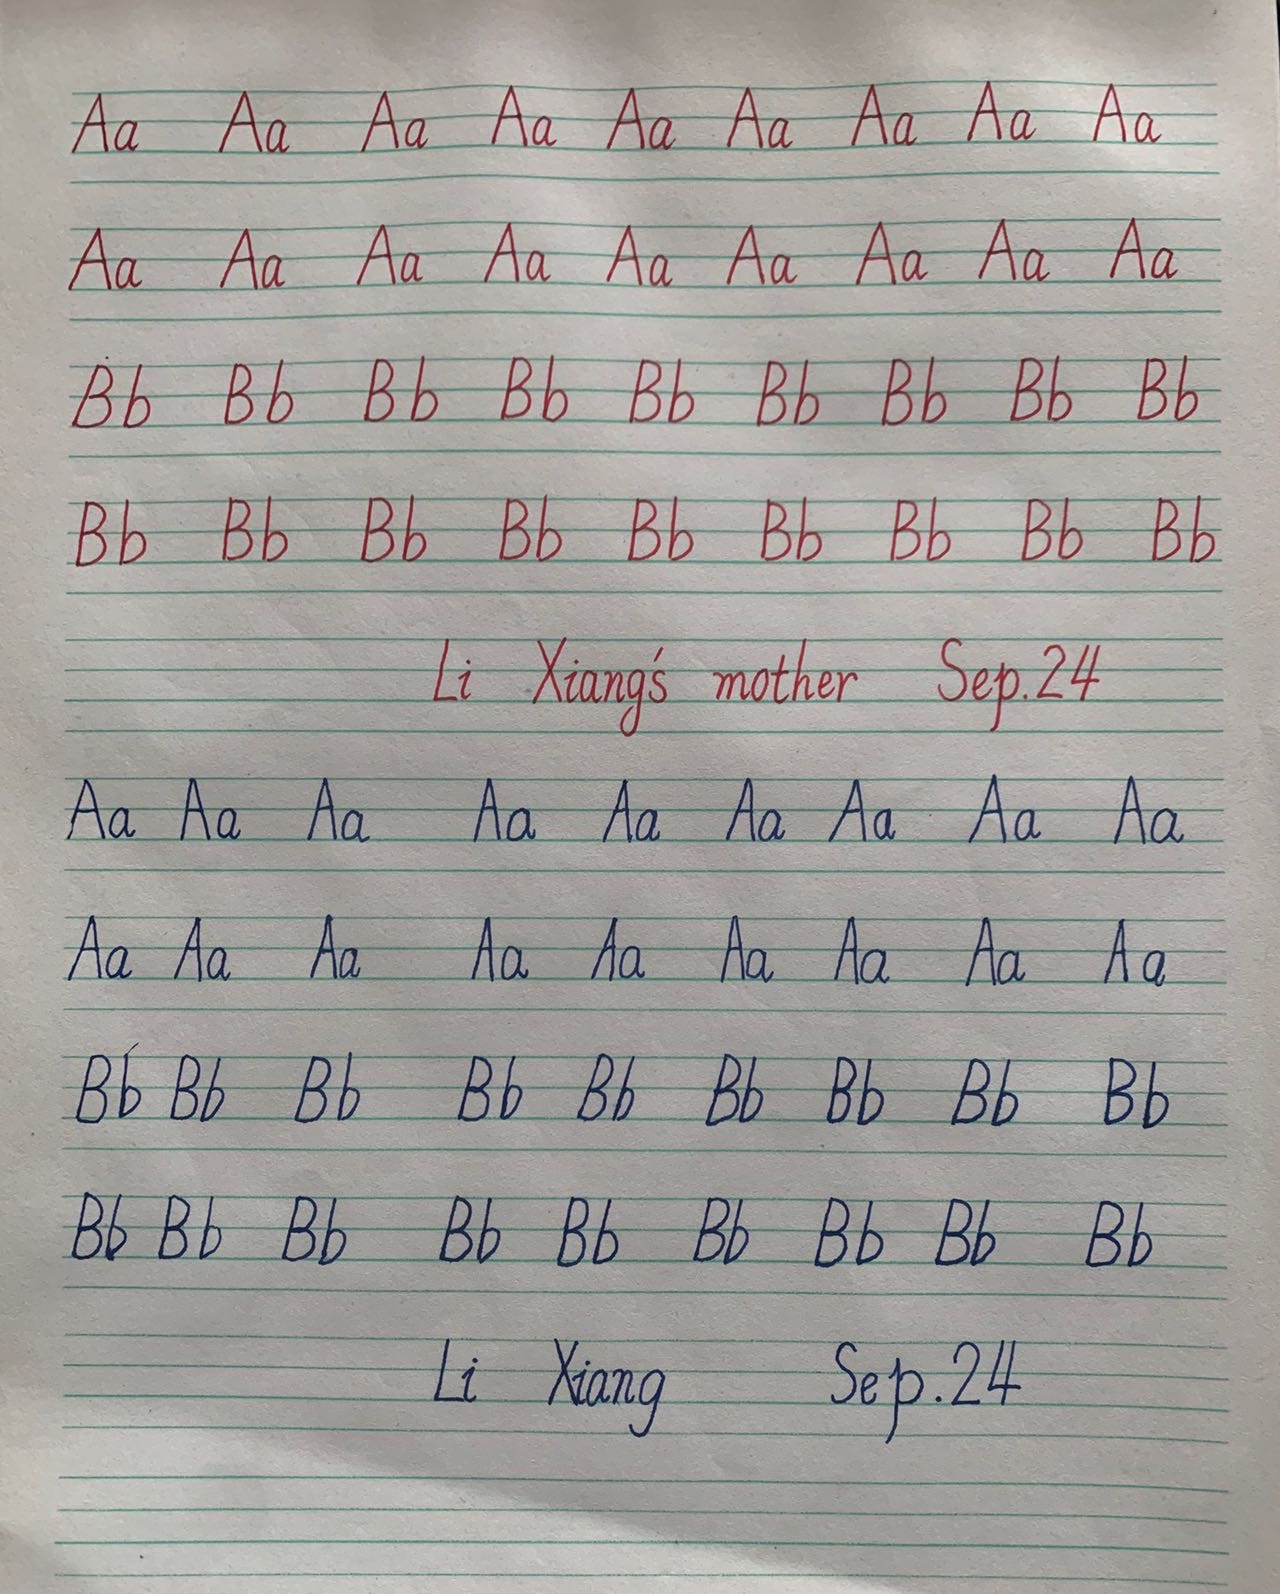 Aa Aa Aa Aa Aa Aa Aa Aa Aa
Aa Aa Aa Aa Aa Aa Aa Aa Aa
Bb Bb Bb Bb Bb Bb Bb Bb Bb
Bb Bb Bb Bb Bb Bb Bb Bb Bb
Li Xiang's mother Sep.24
Aa Aa Aa Aa Aa Aa Aa Aa Aa
Aa Aa Aa Aa Aa Aa Aa Aa Aa
Bb Bb Bb Bb Bb Bb Bb Bb Bb
Bb Bb Bb Bb Bb Bb Bb Bb Bb
Li Xiang Sep.24